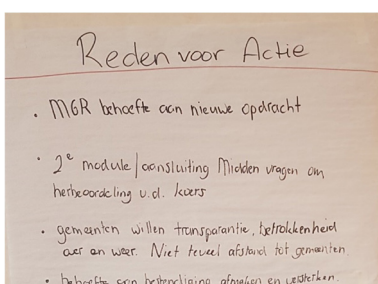 Reden voor Actie
• MGR behoefte aan nieuwe opdracht
• 2e module/aansluiting Midden vragen om
herbeoordeling v.d. koers
• gemeenten willen transparantie, betrokkenheid
over en weer. Niet teveel afstand tot gemeenten
• behoefte aan bestendiging afmaken en versterken.